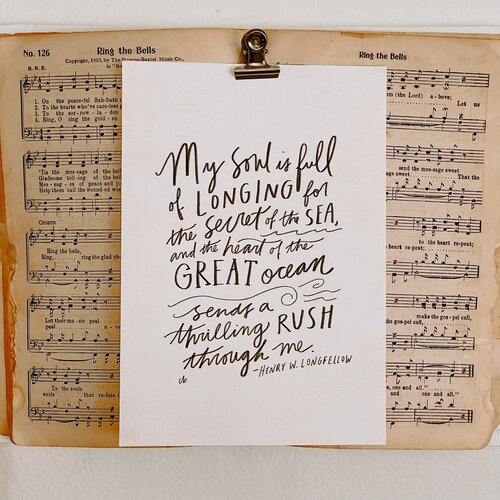 No. 126
Ring the Bells
Ring the Bells
Copyright, 1933, by The Stamps-Baxter Music Co.,
B. B. E.
in "Bo
1. On the peaceful Sab-bath
2. To the hearts who've care-less
3. To the sor-row-la-den
4. Ring, O ring the gold-en
'Tis the mes-sage of the bells
Gladsome toling of the bells
Mes-sag-es of peace and jo
Help them call the wound-ed wo
CHORUS
Ring the bells,
Ring, ring the glad ch
Let their mu-sic peal
peal o-ver
To the souls
souls that re-fuse
om (the Lord) a-bove;
Let us
send the mes-sage sweet
message sweet
That the
to the heart re-peat;
heart re-peat;
make the gos-pel call,
the gos-pel call,
one and all.
, one and all."
and one and all."
My soul is full
of LONGING for
the secret of the SEA,
and the heart of the
GREAT ocean
sends a
thrilling RUSH
through me.
-HENRY W. LONGFELLOW